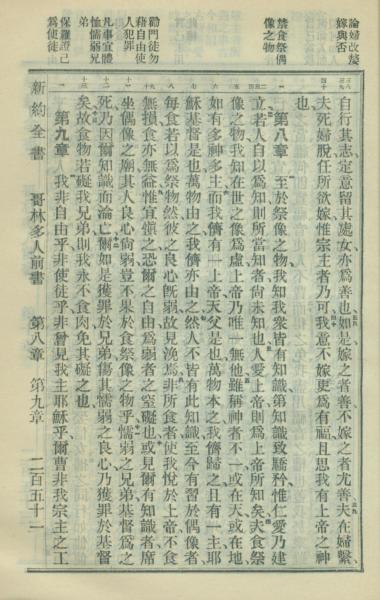 論婦改醮
嫁與否
禁食祭偶
像之物
勸門徒勿
藉自由使
人犯罪
凡事宜體
恤懦弱兄
弟
保羅證己
為使徒
自行其志定意留其處女亦為善也如是嫁之者善不嫁之者尤善夫在婦繫
夫死婦脫任所欲嫁惟宗主者乃可我意不嫁更為有福且思我有上帝之神
也
第八章 至於祭像之物我知我衆皆有知識第知識致驕矜惟仁愛乃建
立若人自以為知則所當知者尚未知也人愛上帝則為上帝所知矣夫食祭
像之物我知在世之像為虛上帝乃唯一無他雖稱神者不一或在天或在地
如有多神多主而我儕有一上帝天父是也萬物本之我儕歸之且有一主耶
穌基督是也萬物由之我儕亦由之然人不皆有此知識至今有習於偶像者
每食若以為祭物然彼之良心旣弱故見浼焉非所食者使我悅於上帝不食
無損食亦無益惟宜愼之恐爾之自由為弱者之窒礙也或見爾有知識者席
坐偶像之廟其人良心尚弱豈不果於食祭像之物乎懦弱之兄弟基督為之
死乃因爾知識而淪亡爾如是獲罪於兄弟傷其懦弱之良心乃獲罪於基督
矣故食物若礙我兄弟則我永不食肉免其礙之也
第九章 我非自由乎非使徒乎非曾見我主耶穌乎爾曹非我宗主之工
新約全書 哥林多人前書 第八章 第九章 二百五十一